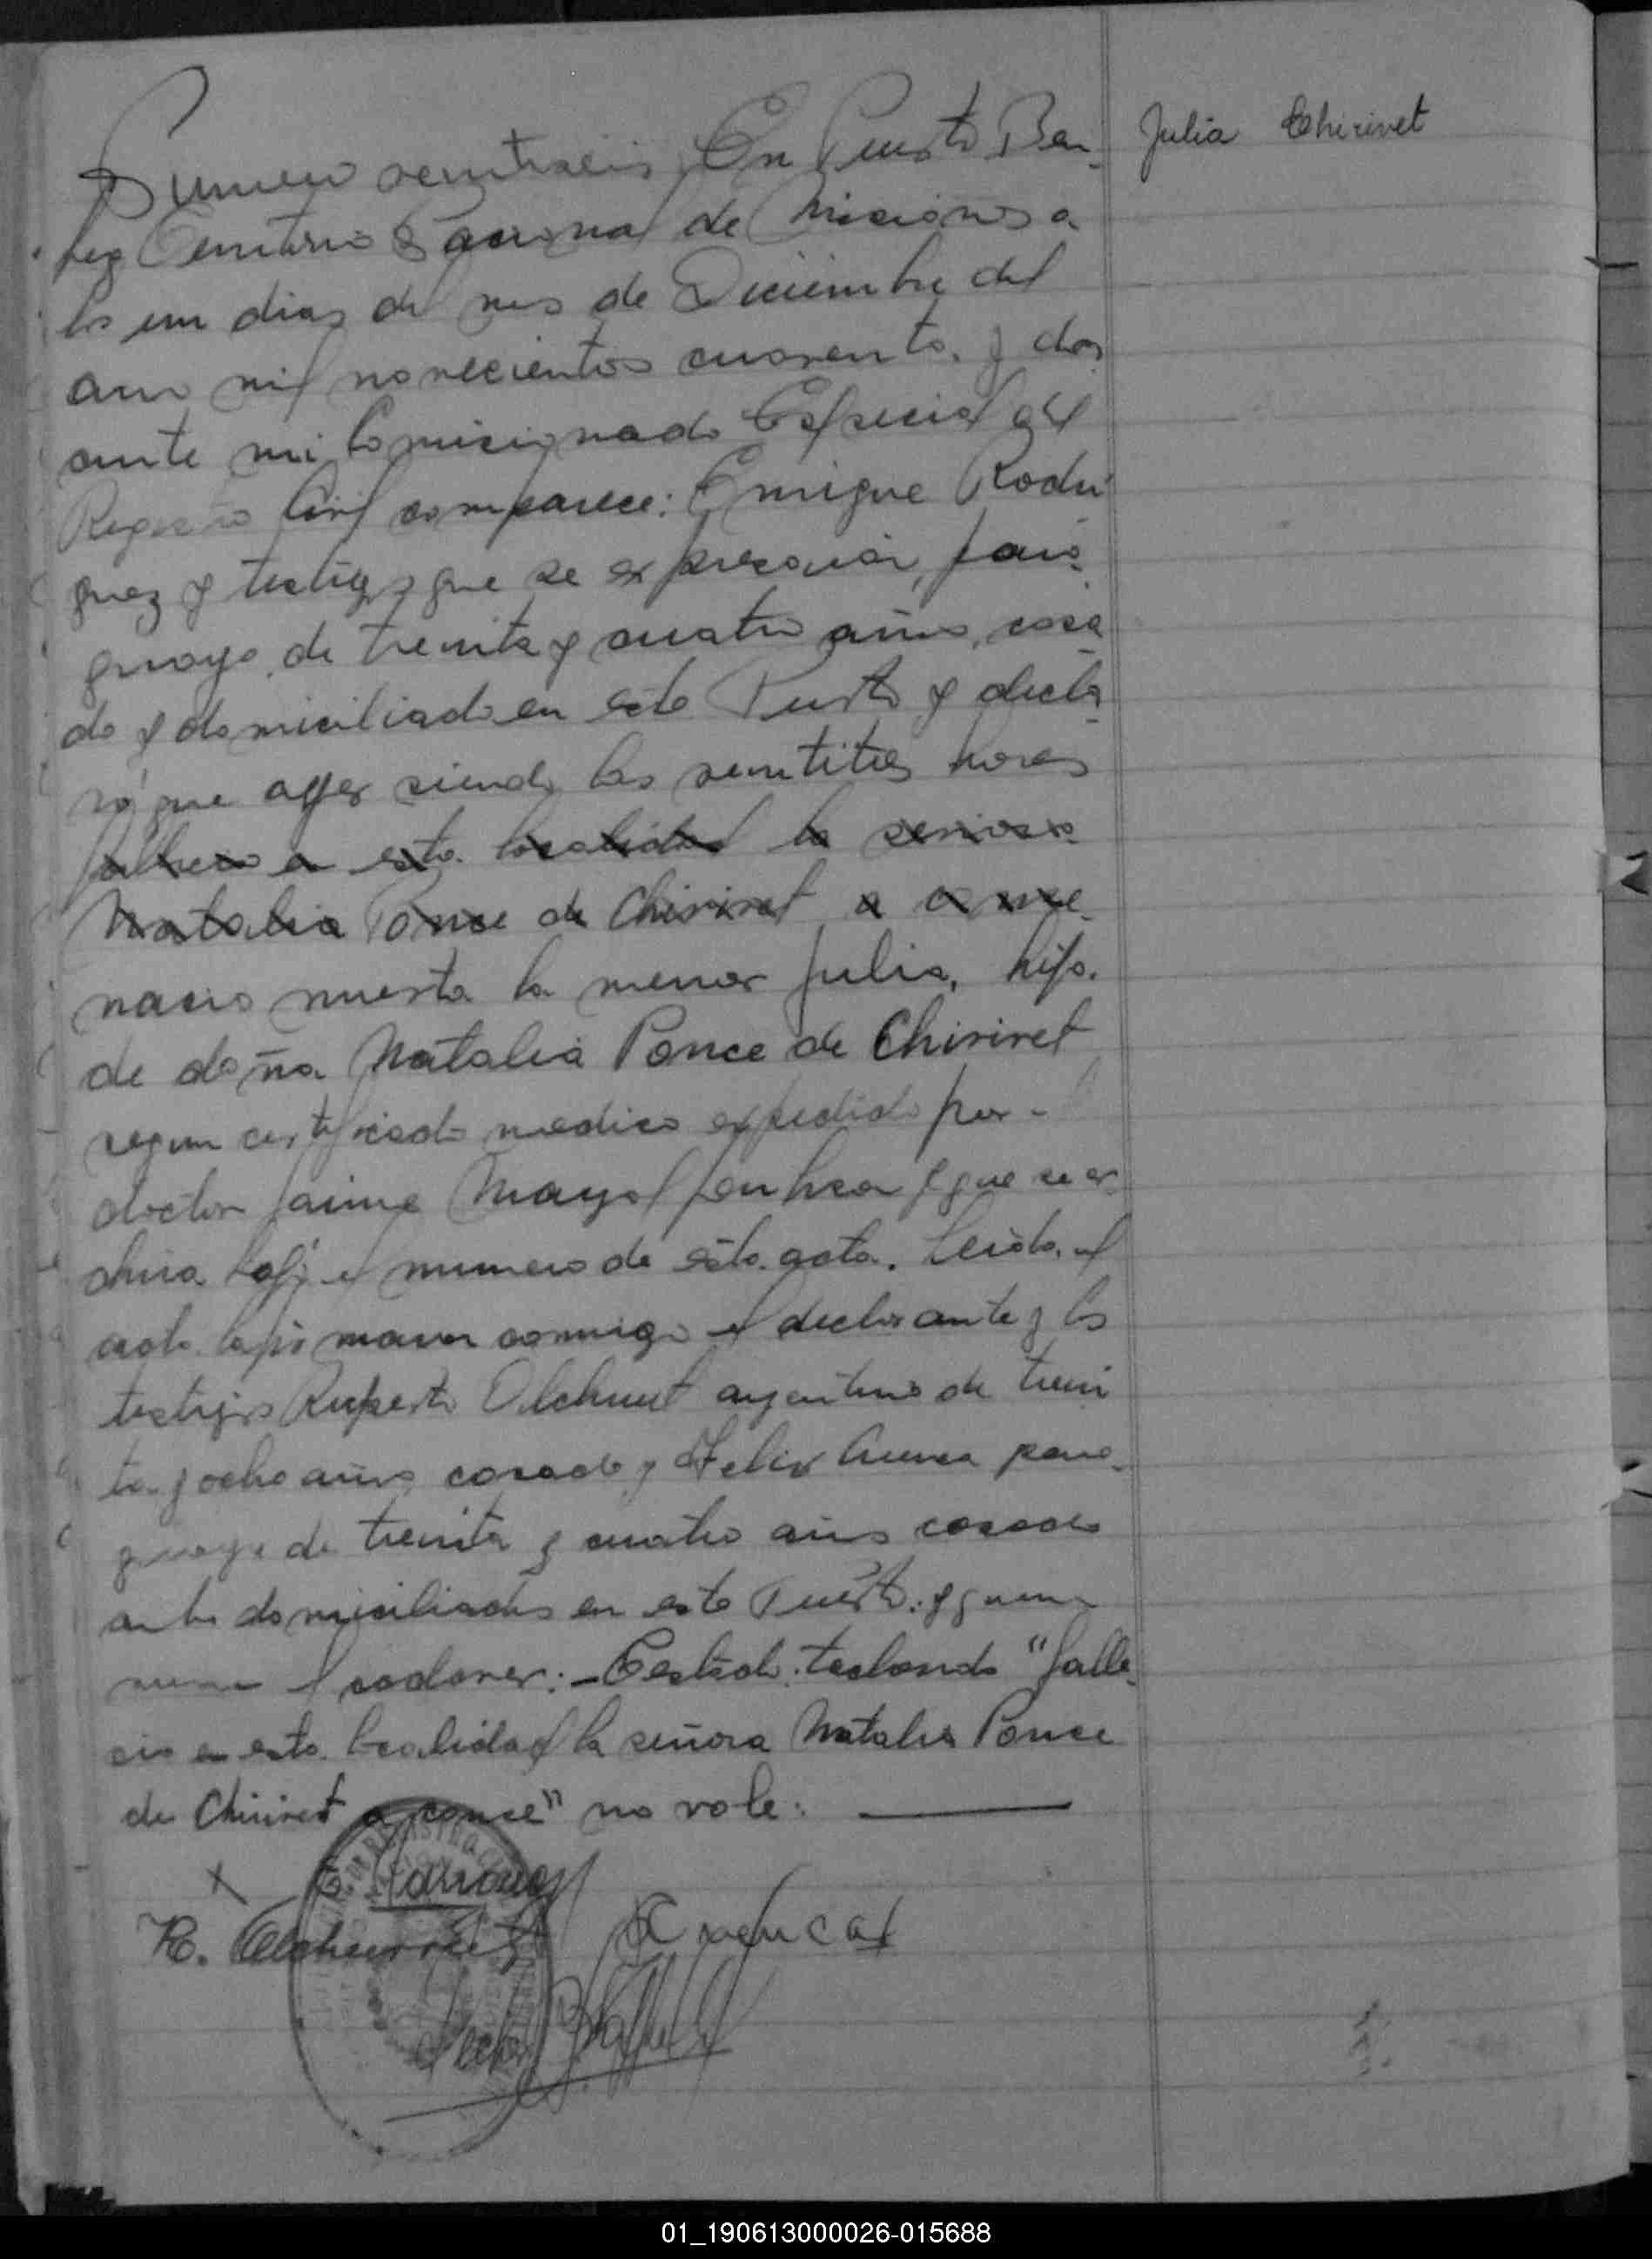 Numero veintiseis. En Puerto Ber-
Julia Chirivet
Territorio Nacional de Misiones a
los un dias del mes de Diciembre del
año mil novecientos cuarenta y dos
ante mi Comisionado Especial del
Registro Civil comparece: Enrique Rodri
guez y testigos que se expresaran, para-
guayo, de treinta y cuatro años, casa
do y domiciliado en este Puerto y decla-
ró que ayer siendo las veintitres horas
fallecio en esta localidad la señora
Natalia Ponce de Chirivet a conse-
nacio muerta la menor Julia, hija
de doña Natalia Ponce de Chirivet
segun certificado medico expedido por-
doctor Jaime Mayol y que se ar
chiva bajo el numero de esta acta. Leida el
acta conmigo el declarante y los
testigos Ruperto argentino de trein
ta y ocho años casado y Felix para-
guayo de treinta y cuatro años casado
ambos domiciliados en este Puerto. y
el cadaver:- testando "falle-
cio en esta localidad la señora Natalia Ponce
de Chirivet a conse" no vale: ———
R.
01_190613000026-015688